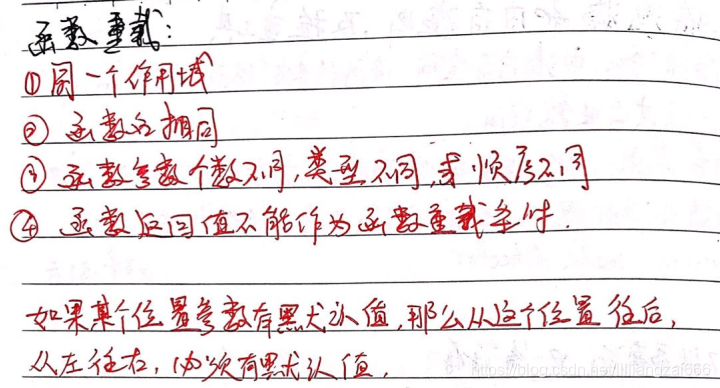 函数重载:
①同一个作用域
②函数名相同
③函数参数个数不同,类型不同,或顺序不同
④函数返回值不能作为函数重载条件.
如果某个位置参数有默认值,那么从这个位置往后,
从左往右,必须有默认值.
https://blog.csdn.net/lilliangzai6661